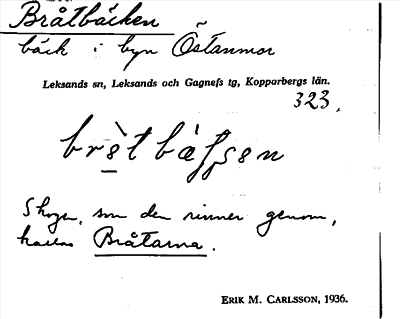 Bråtbäcken
bäck i byn Östanmor
Leksands sn, Leksands och Gagnefs tg, Kopparbergs län.
323.
Skogen, som den rinner genom,
kallas Bråtarna.
ERIK M. CARLSSON, 1936.